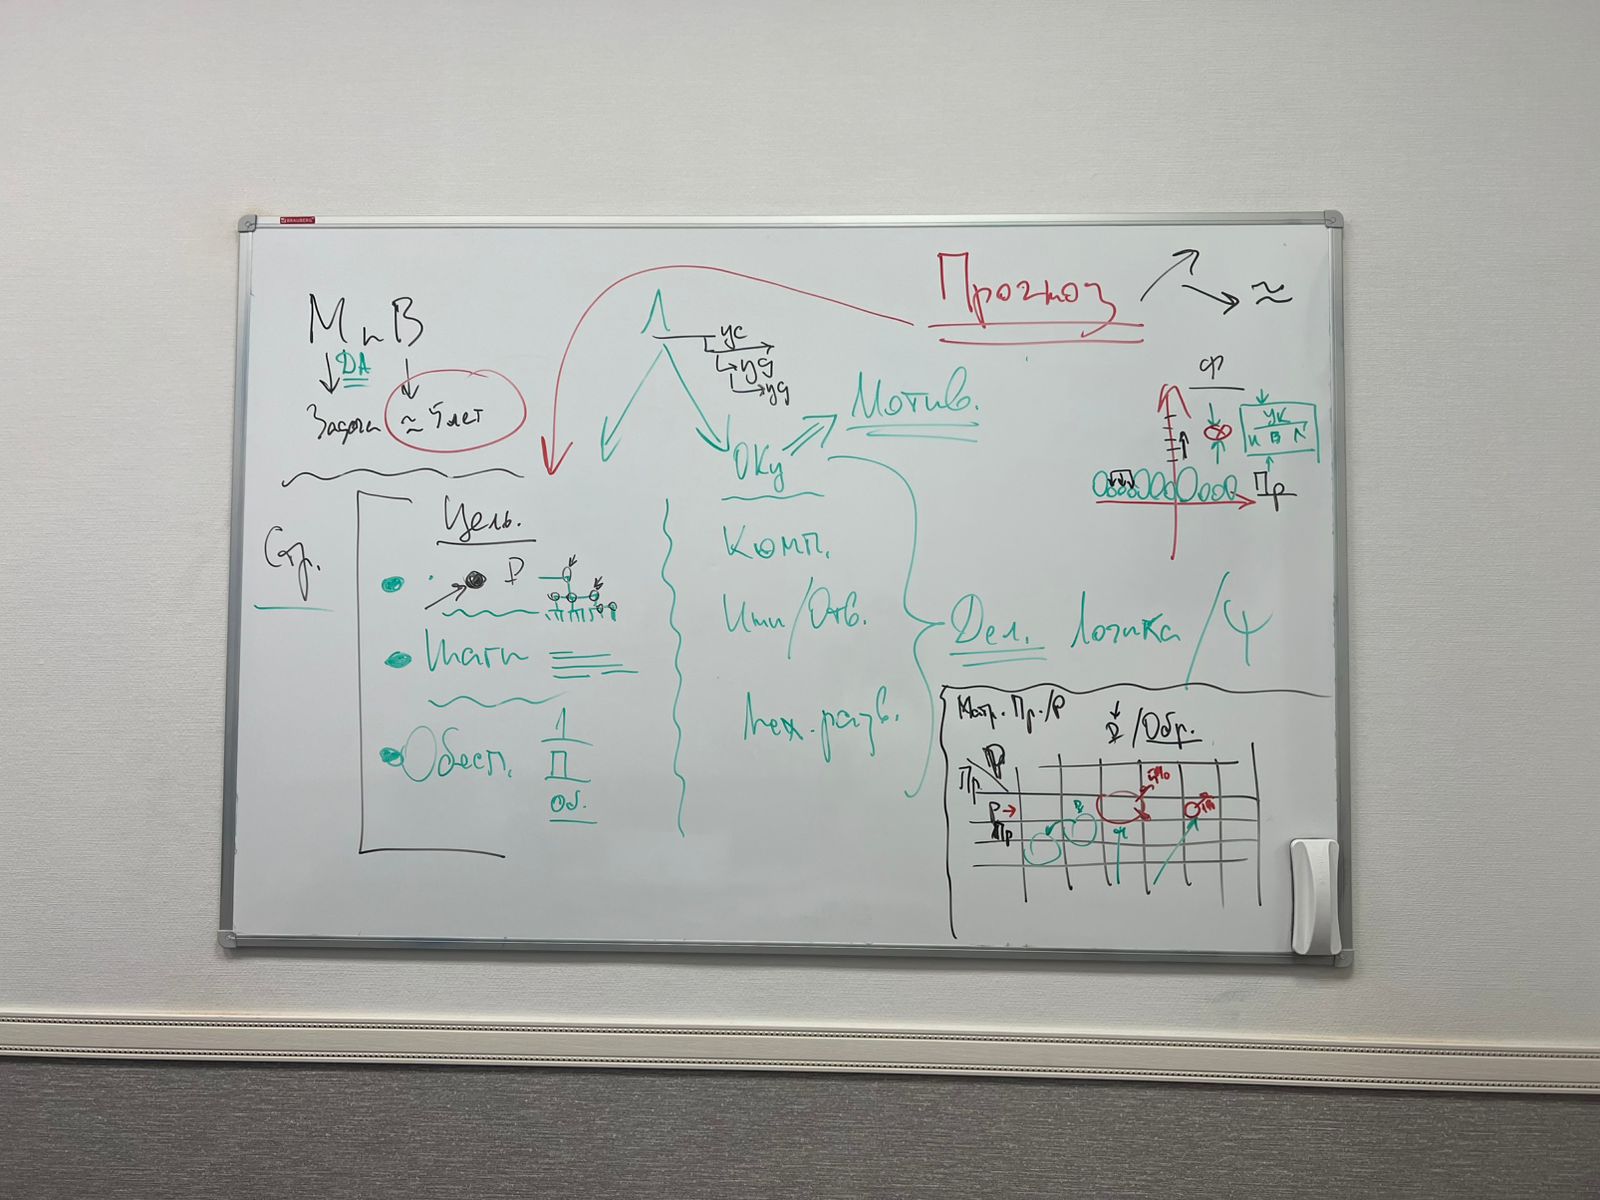 BRAUBERG
М и В
ДА
Задача ≈ 5 лет
Стр.
Цель.
Р
Шаги
Обесп.
Л
П
Об.
Л
ус
уд
уд
ОКУ
Мотив.
Комп.
Ини/Отв.
Мех. разв.
Прогноз
≈
Ф
УК
И В Л
Пр
Дел. Логика / Ψ
Матр. Пр./Р
/Обр.
Р
Пр
Р
Пр